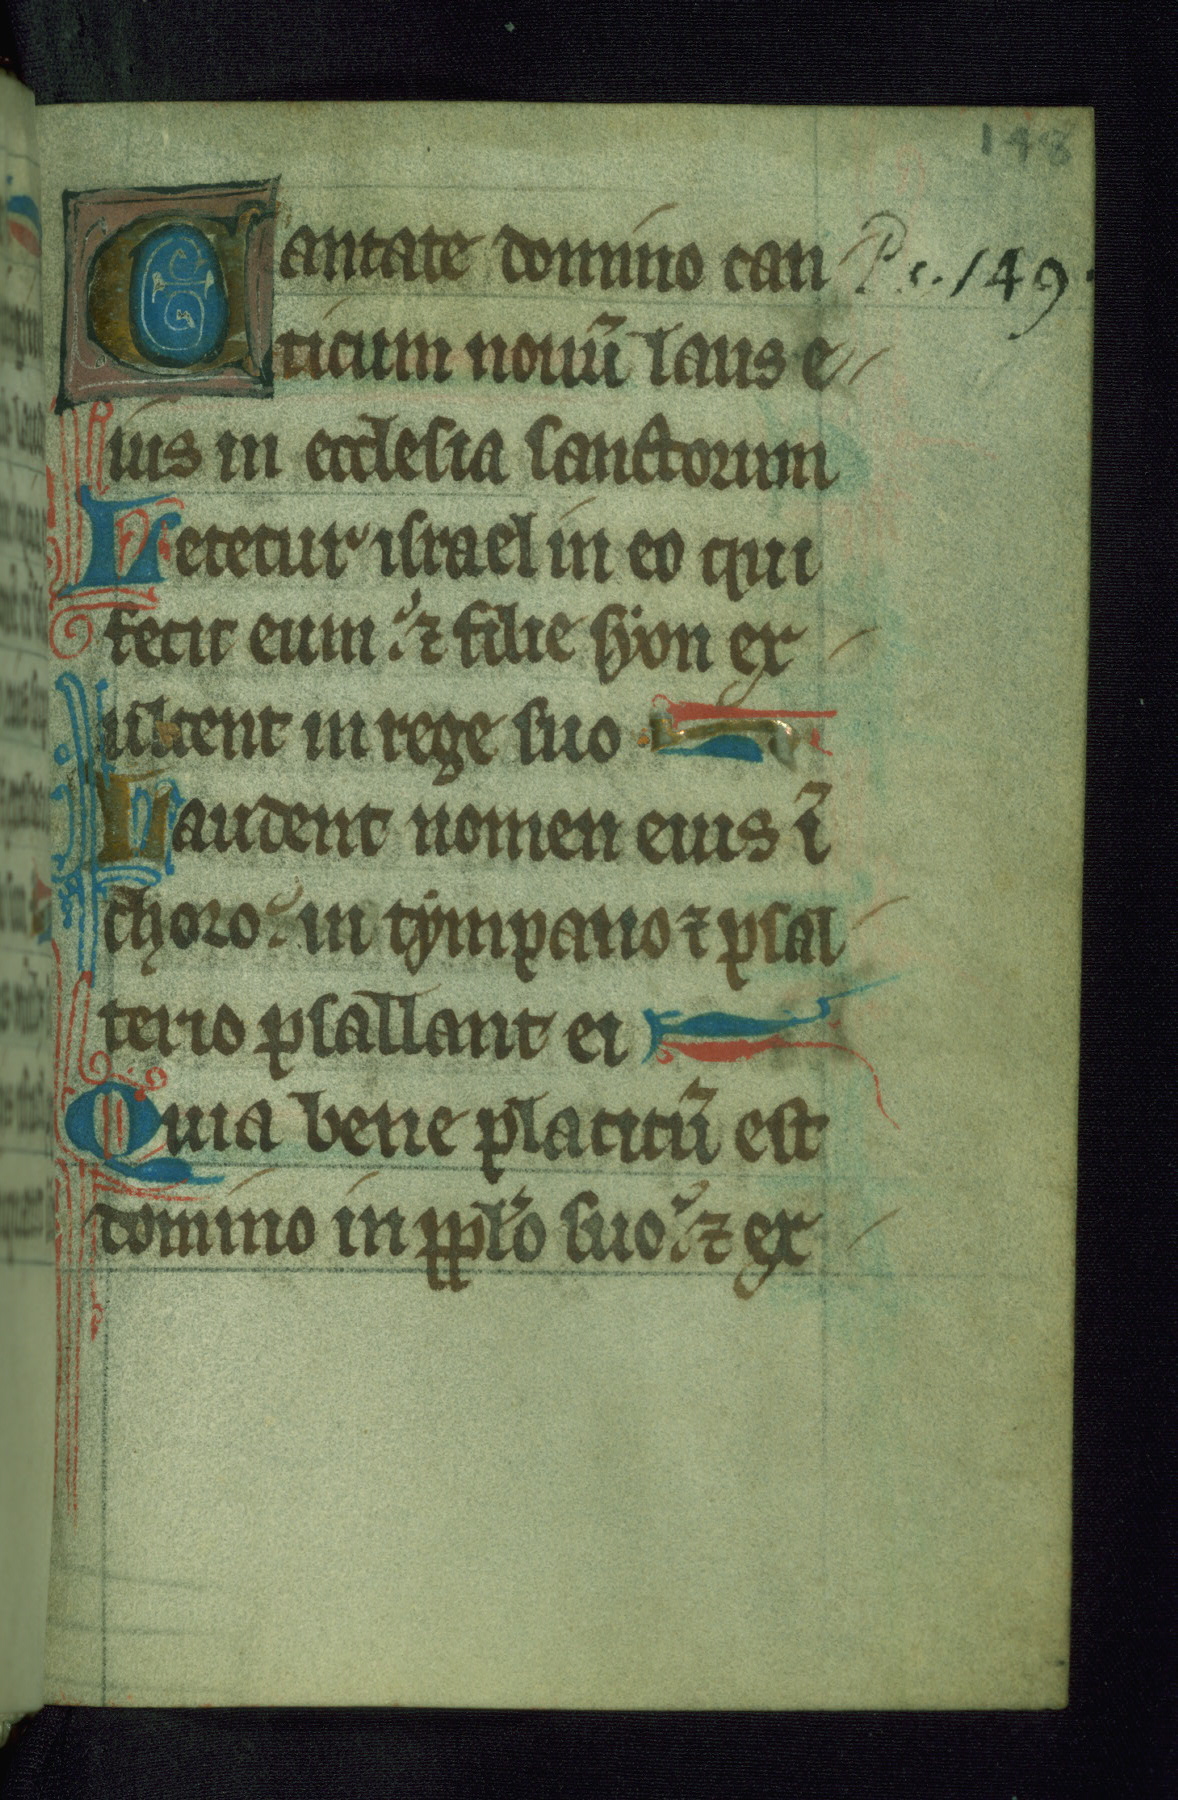 148
Cantate domino can
Ps. 149.
ticum nouū laus e
ius in ecclesia sanctorum
Letetur israel in eo qui
fecit eum ⁊ filie syon ex
ultent in rege suo
Laudent nomen eius ī
choro in tympano ⁊ psal
terio psallant ei
Quia bene placitū est
domino in pplo suo ⁊ ex